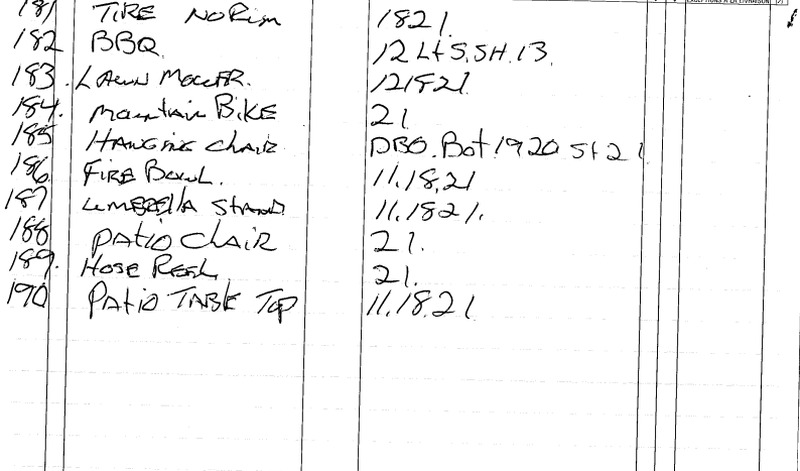 181 TIRE NO RIM 1821.
182 BBQ 12 Lts.SH.13.
183. LAWN MOWER. 121821
184. Mountain BIKE 21
185 HANGING CHAIR DBO.Bot.1920 St 21
186 FIRE BOWL. 11.18.21
187 UMBRELLA STAND 11.1821.
188 PATIO CHAIR 21.
189. HOSE REEL 21.
190 PATIO TABLE TOP 11.18.21